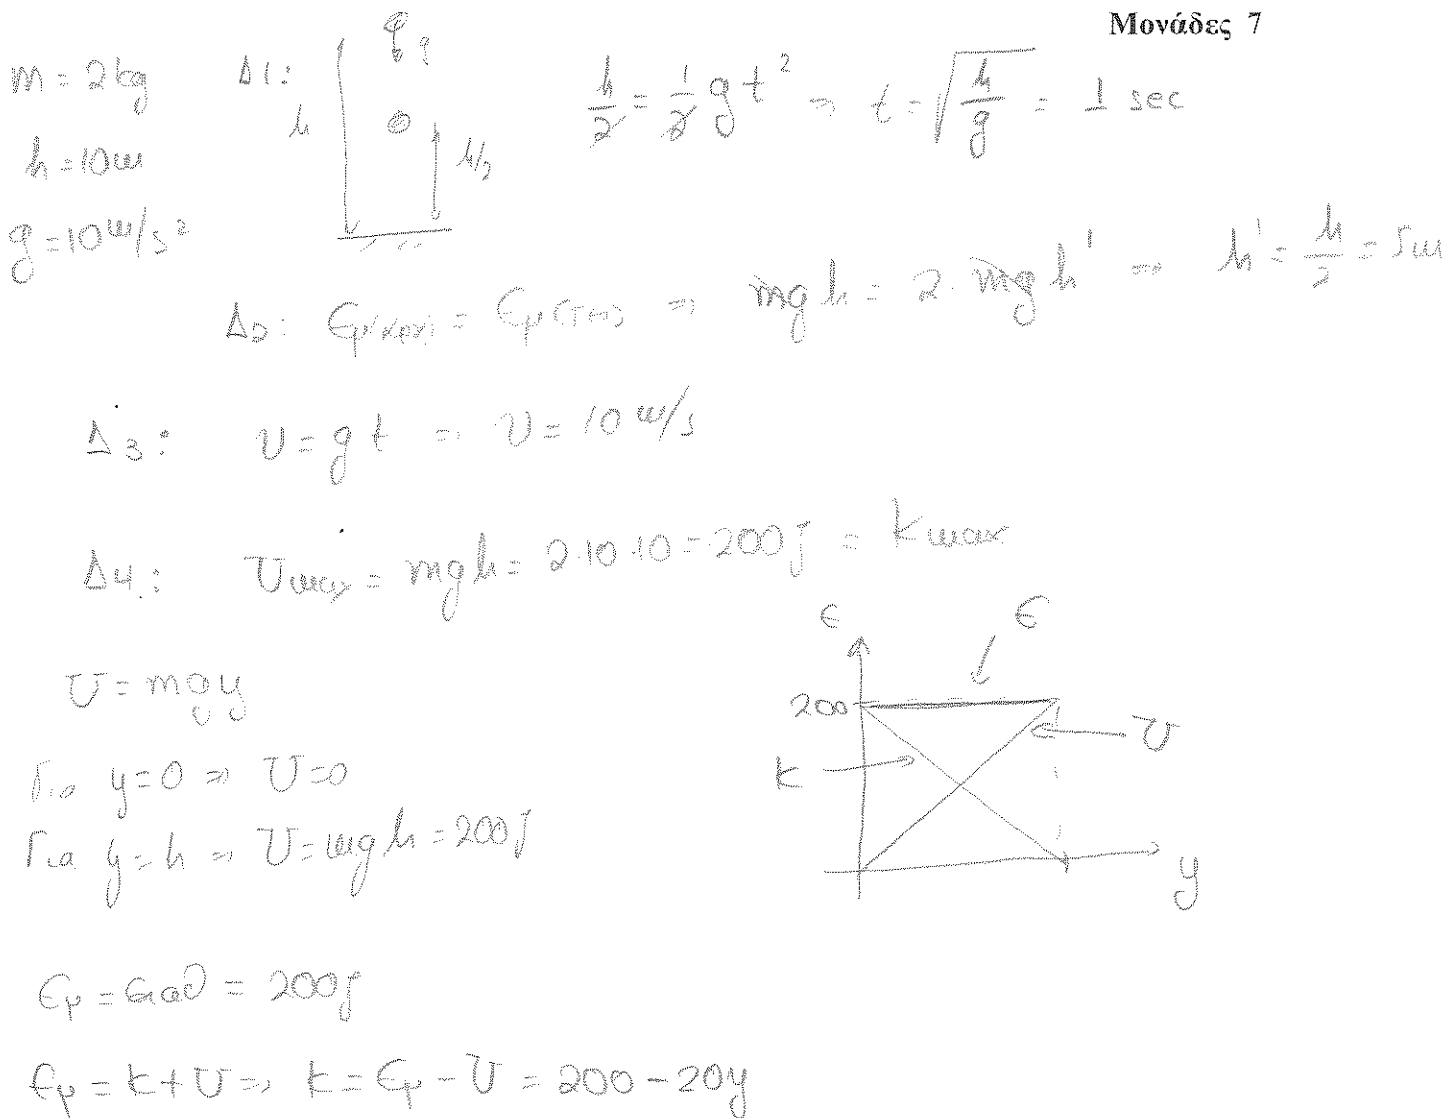 Μονάδες 7
m = 2kg
Δ1:
h
g
h/2
h/2 = 1/2 g t² ⇒ t = √(h/g) = 1 sec
h = 10m
g = 10 m/s²
Δ2: Εμ(αρχ) = Εμ(τελ) ⇒ mgh = 2·mgh' ⇒ h' = h/2 = 5m
Δ3: υ = gt ⇒ υ = 10 m/s
Δ4: Umax = mgh = 2·10·10 = 200J = Kmax
U = mgy
Για y=0 ⇒ U=0
Για y=h ⇒ U=mgh=200J
ε
Ε
200
U
K
y
Εμ = σταθ = 200J
Εμ = K+U ⇒ K = Εμ - U = 200 - 20y